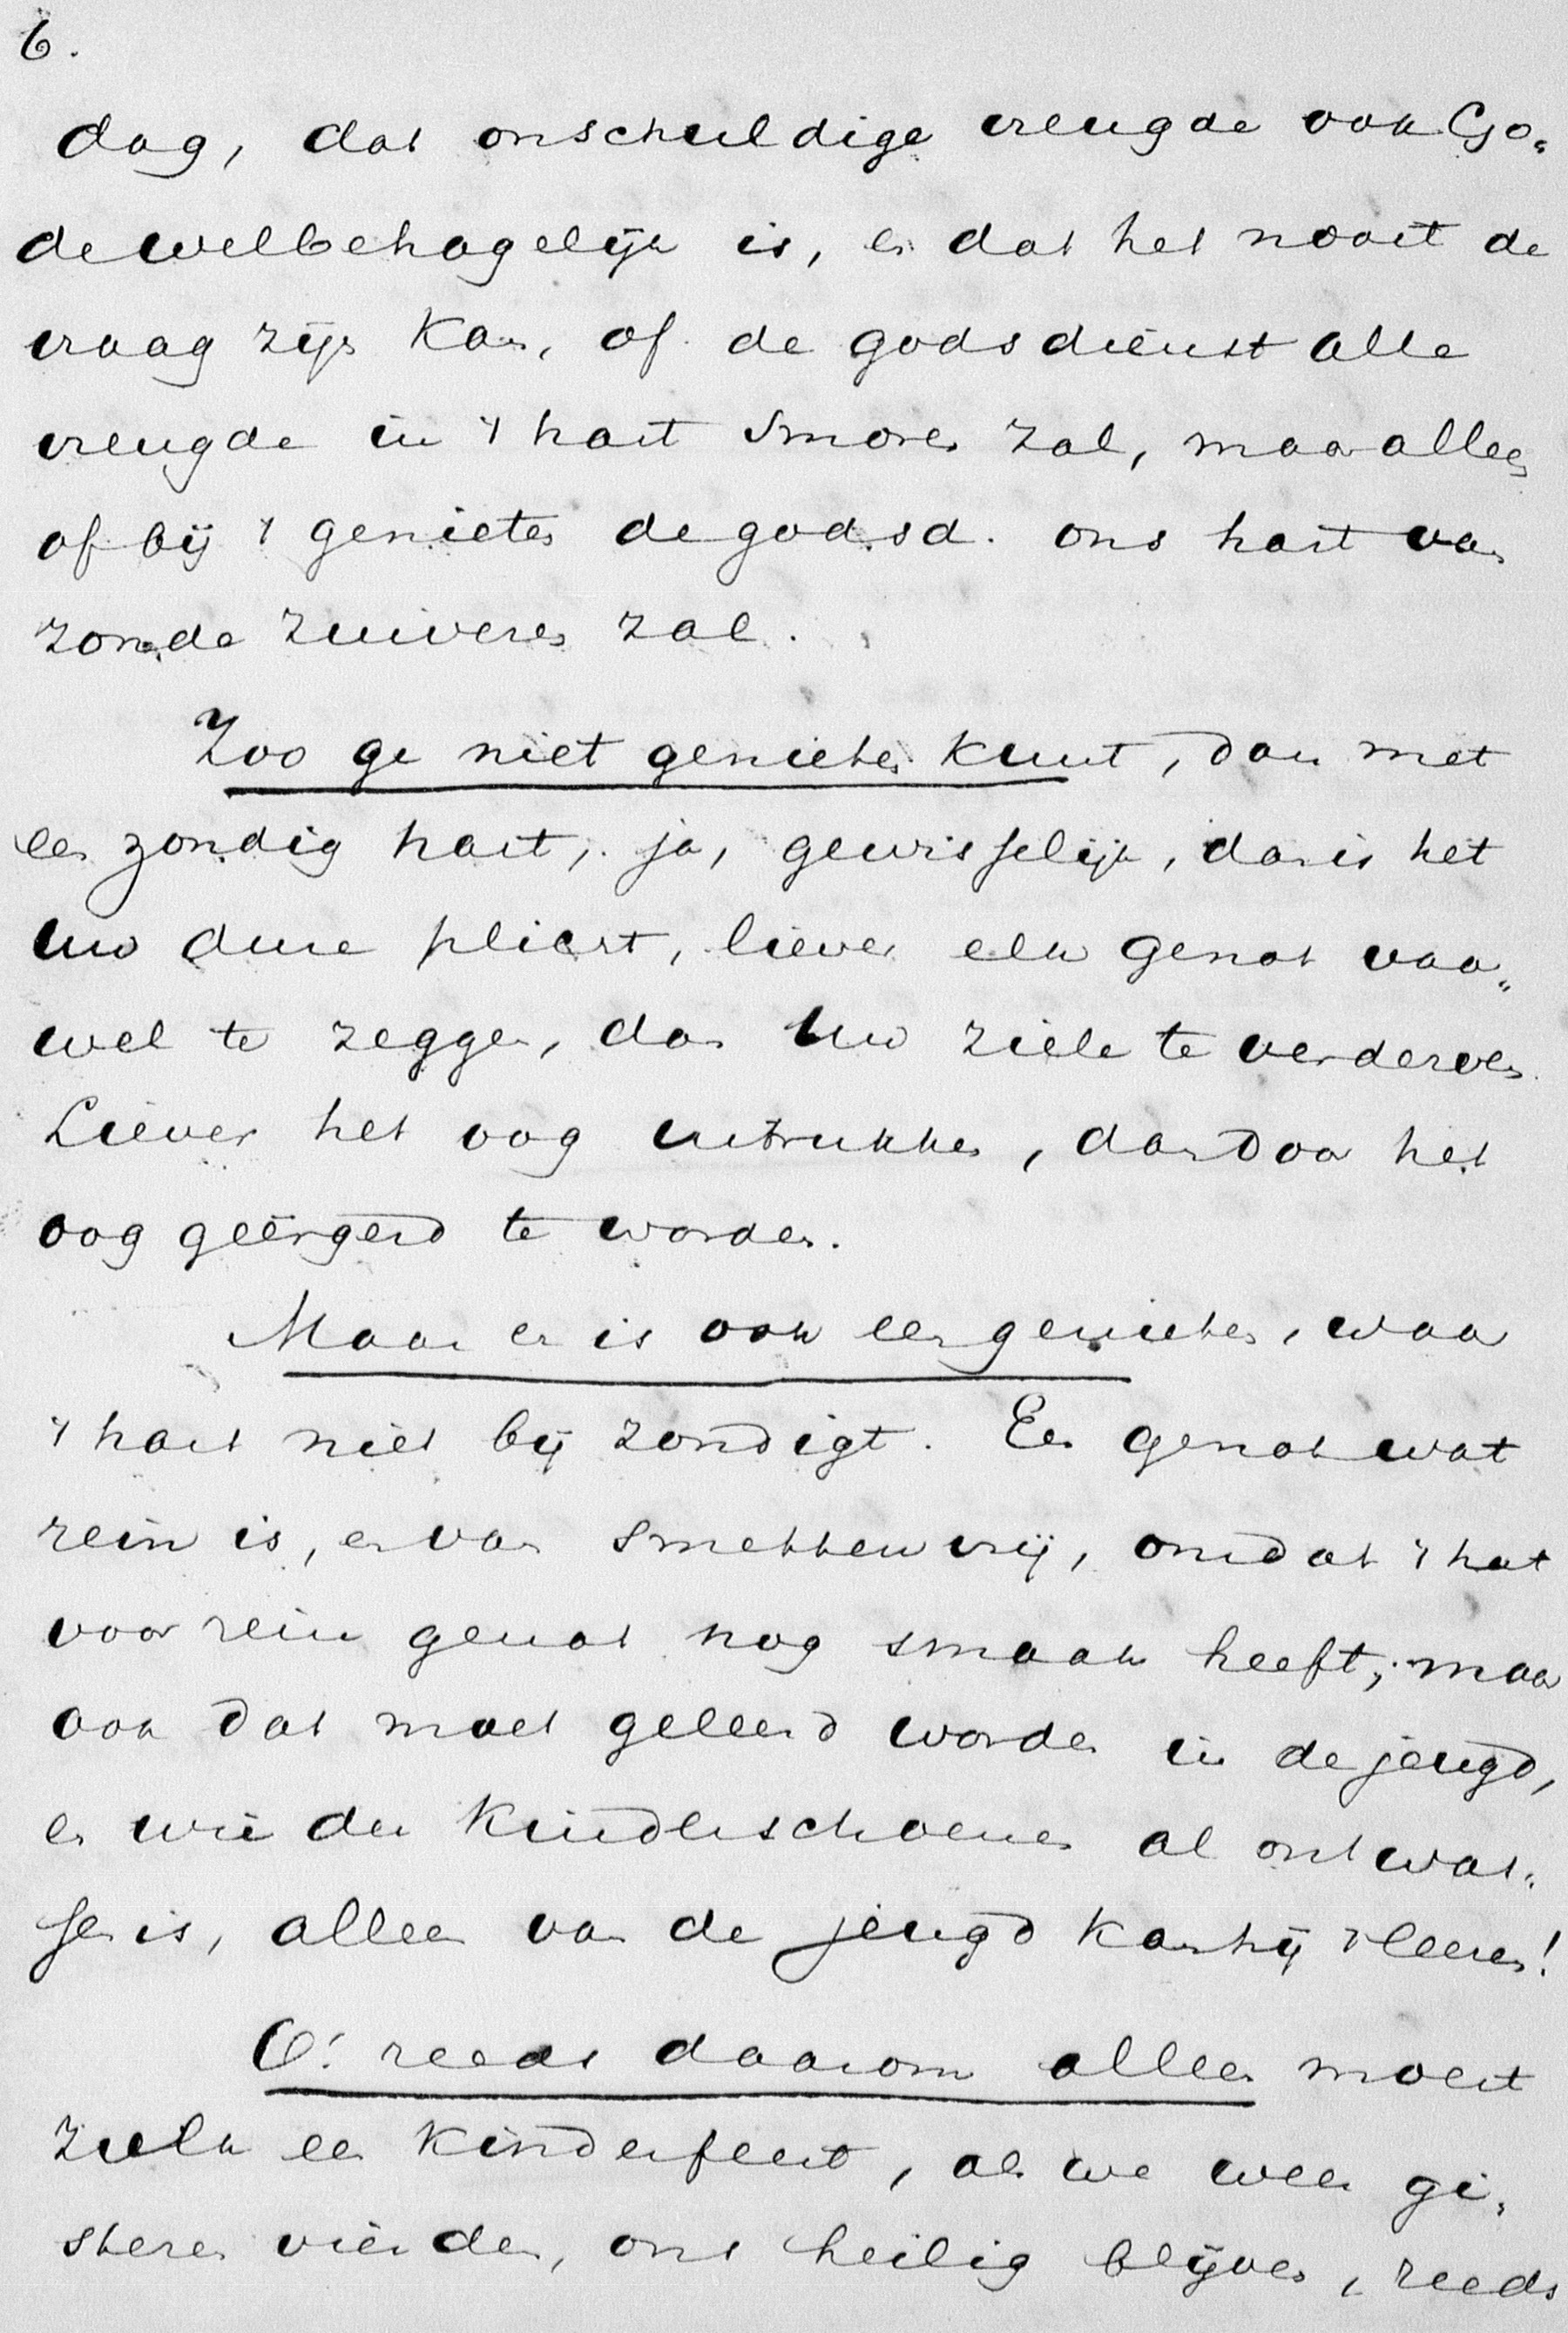 6.
dag, dat onschuldige vreugde ook Go„
de welbehagelijk is, en dat het nooit de
vraag zijn kan, of de godsdienst alle
vreugde in 't hart smoren zal, maar alleen
of bij 't genieten de godsd. ons hart van
zonde zuiveren zal.
Zoo ge niet genieten kunt, dan met
een zondig hart, ja, gewisselijk, dan is het
Uw dure plicht, liever elk genot vaar„
wel te zeggen, dan Uw ziele te verderven.
Liever het oog uitrukken, dan door het
oog geërgerd te worden.
Maar er is ook een genieten, waar
't hart niet bij zondigt. Een genot wat
rein is, en van smetten vrij, omdat 't hart
voor rein genot nog smaak heeft; maar
ook dat moet geleerd worden in de jeugd,
en wie der kinderschoenen al ontwas„
sen is, alleen van de jeugd kan hij 't leeren!
O! reeds daarom alleen moest
zulk een kinderfeest, als we weer gi„
steren vierden, ons heilig blijven, reeds